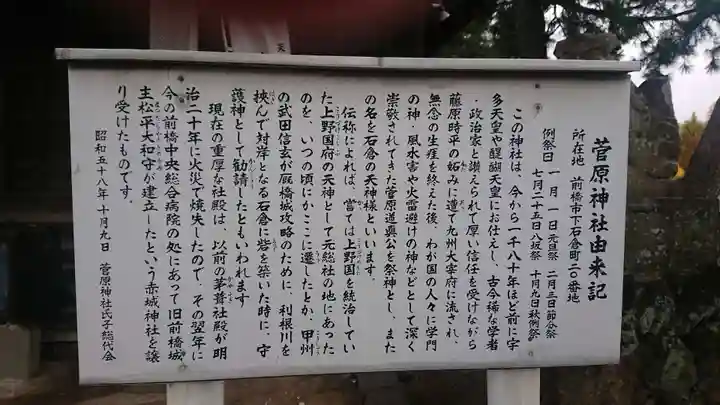 菅原神社由来記
所在地 前橋市下石倉町二〇番地
例祭日 一月一日元旦祭 二月三日節分祭
七月二十五日八坂祭 十月九日秋例祭
この神社は、今から一千八十年ほど前に宇
多天皇や醍醐天皇にお仕えし、古今稀な学者
・政治家と讃えられて厚い信任を受けながら
藤原時平の妬みに遭て九州大宰府に流され、
無念の生涯を終えた後、わが国の人々に学問
の神、風水害や火雷避けの神などとして深く
崇敬されてきた菅原道眞公を祭神とし、また
の名を石倉の天神様といいます。
伝称によれば、嘗ては上野国を統治してい
た上野国府の天神として元総社の地にあった
のを、いつの頃にかここに遷したとか、甲州
の武田信玄が厩橋城攻略のために、利根川を
挾んで対岸となる石倉に砦を築いた時に、守
護神として勧請したともいわれます
現在の重厚な社殿は、以前の茅葺社殿が明
治二十年に火災で焼失したので、その翌年に
今の前橋中央総合病院の処にあって旧前橋城
主松平大和守が建立したという赤城神社を譲
り受けたものです。
昭和五十八年十月九日 菅原神社氏子総代会